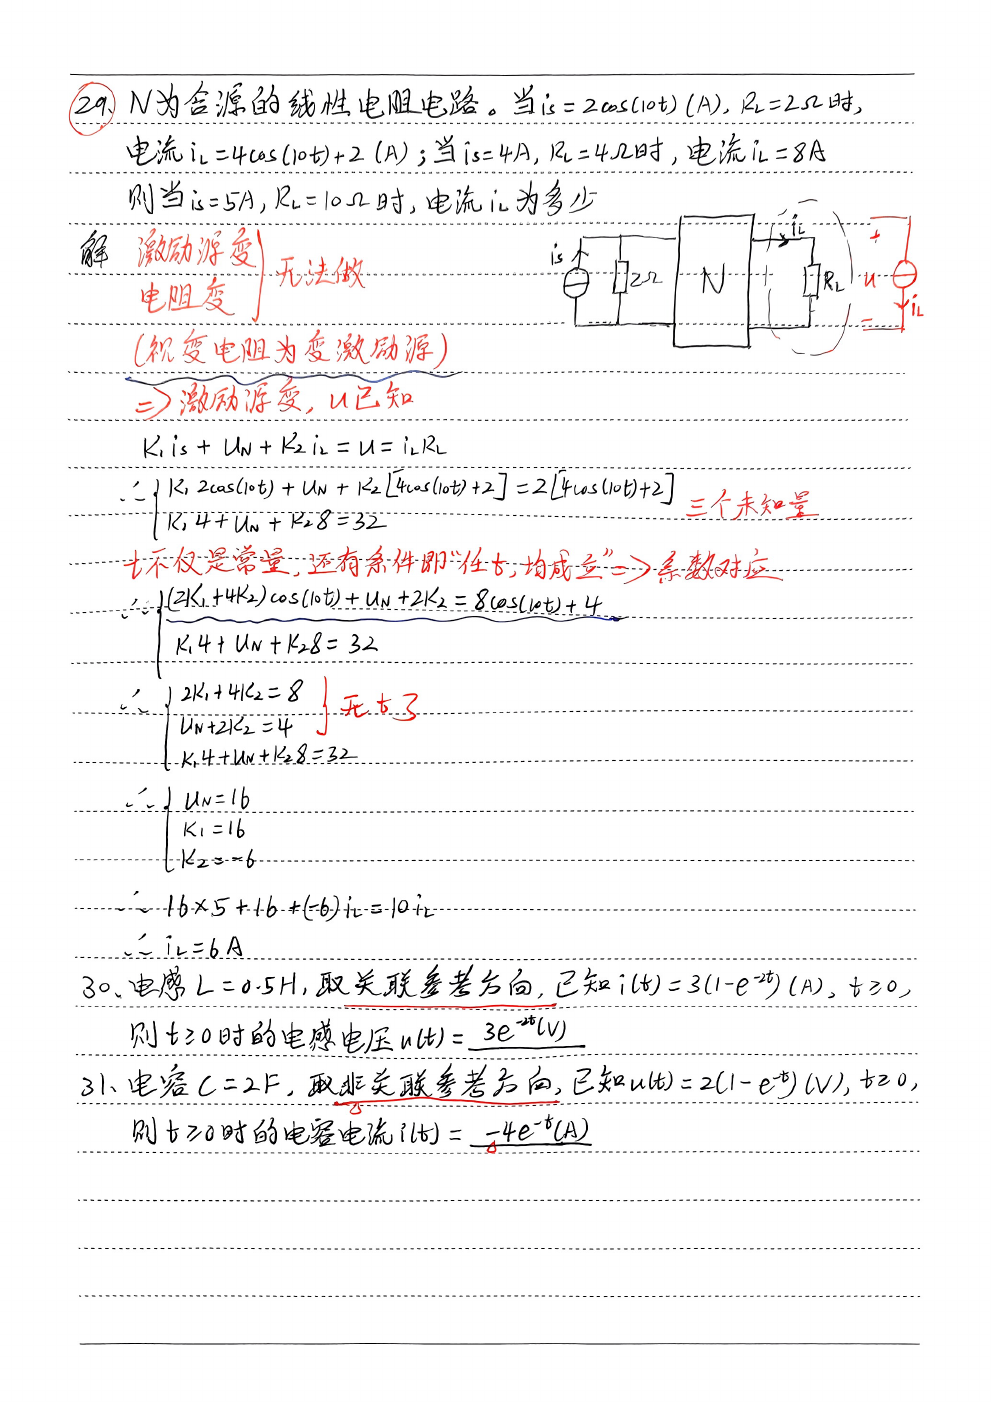 29、N为含源的线性电阻电路。当is=2cos(10t)(A), RL=2Ω时,
电流iL=4cos(10t)+2 (A);当is=4A, RL=4Ω时,电流iL=8A
则当is=5A, RL=10Ω时,电流iL为多少
is 2Ω N iL RL + u − iL
解 激励源变
电阻变 } 无法做
(视变电阻为变激励源)
=> 激励源变, u已知
K1is + UN + K2iL = u = iLRL
∴ { K1 2cos(10t) + UN + K2[4cos(10t)+2] = 2[4cos(10t)+2]
K1 4 + UN + K2 8 = 32 三个未知量
t不仅是常量,还有条件即“任t,均成立” => 系数对应
∴ { (2K1+4K2)cos(10t) + UN + 2K2 = 8cos(10t)+4
K1 4 + UN + K2 8 = 32
∴ { 2K1+4K2=8
UN+2K2=4 } 无t了
K1 4+UN+K2 8=32
∴ { UN=16
K1=16
K2=-6
∴ 16×5+16+(-6)iL=10iL
∴ iL=6A
30、电感L=0.5H,取关联参考方向,已知i(t)=3(1-e^-2t)(A), t≥0,
则t≥0时的电感电压u(t)= 3e^-2t(V)
31、电容C=2F,取非关联参考方向,已知u(t)=2(1-e^-t)(V), t≥0,
则t≥0时的电容电流i(t)= -4e^-t(A)